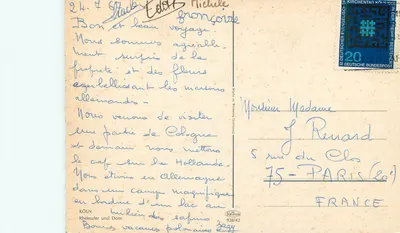 24.7.67
Michèle
Bon et beau voyage.
Nous sommes agréable-
ment surpris de la
propreté et des fleurs
embellissant les maisons
allemandes.
Nous venons de visiter
une partie de Cologne
et demain nous mettons
le cap sur la Hollande.
Nous étions en Allemagne
dans un camp magnifique
en bordure d'un lac au
milieu des sapins
Bonnes vacances
KÖLN
Rheinufer und Dom
KIRCHENTAG
20
DEUTSCHE BUNDESPOST
Monsieur Madame
J Renard
5 rue du Clos
75 - PARIS (20e)
FRANCE